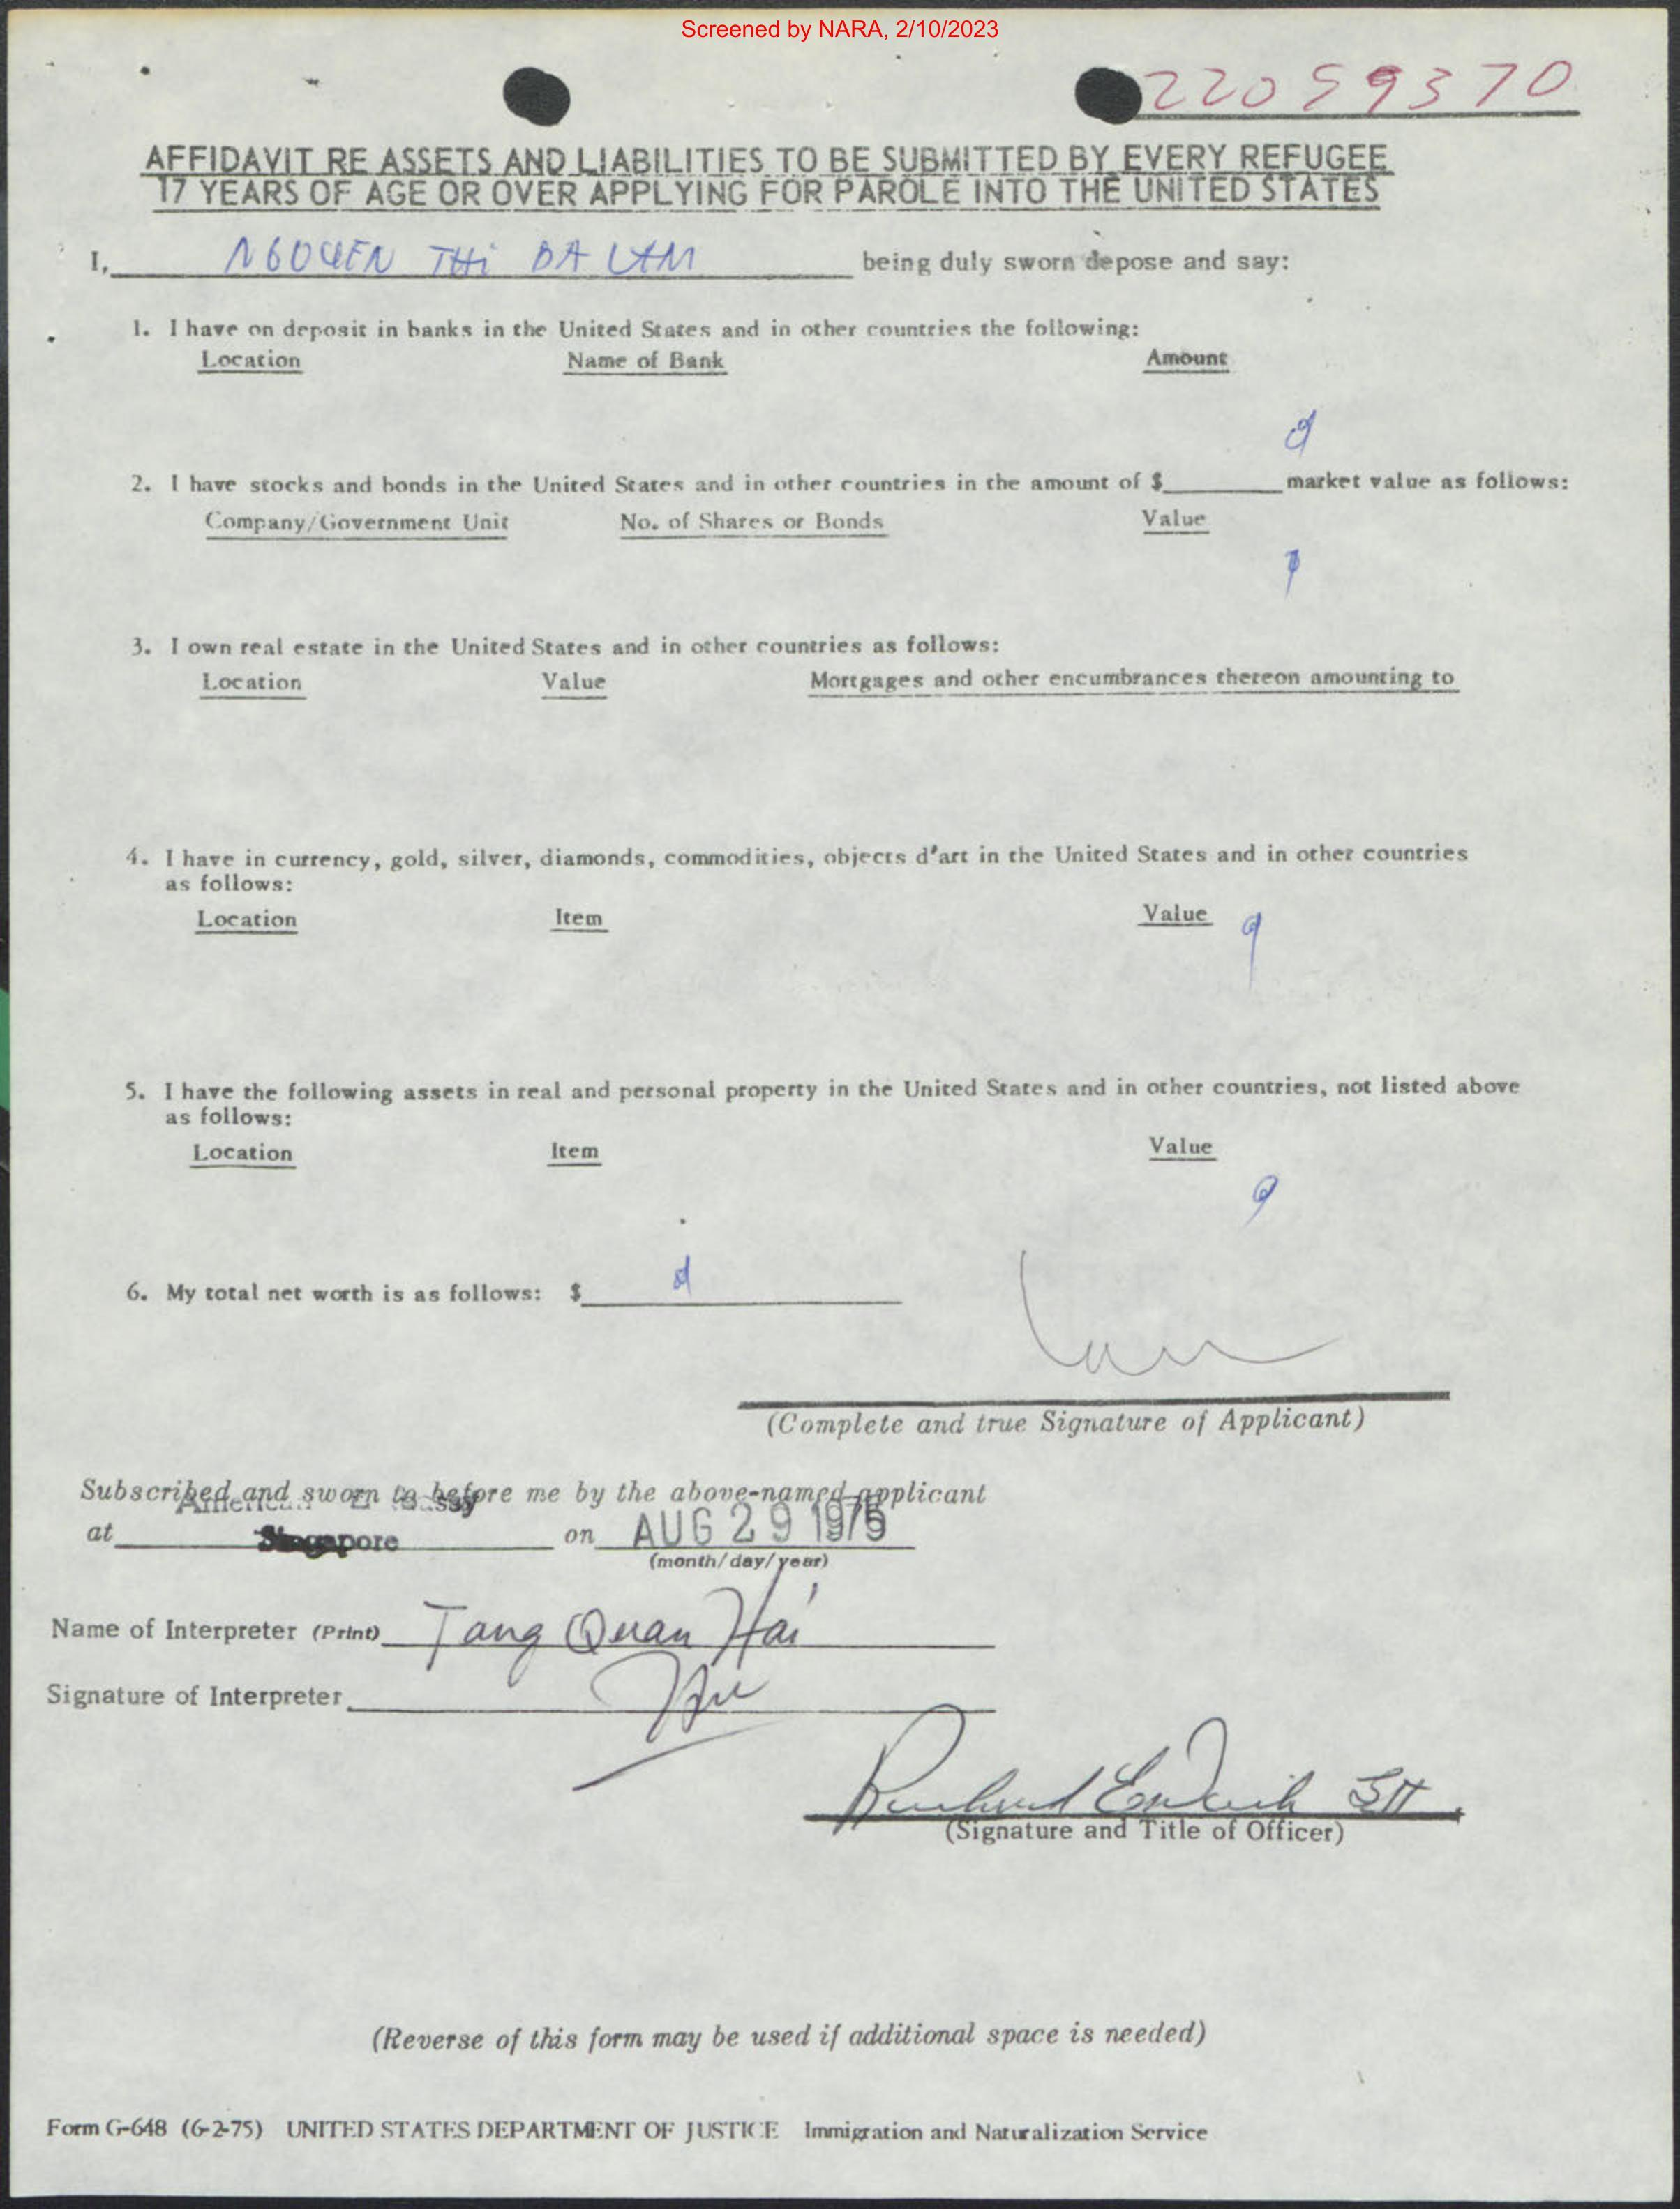 Screened by NARA, 2/10/2023
22059370
AFFIDAVIT RE ASSETS AND LIABILITIES TO BE SUBMITTED BY EVERY REFUGEE
17 YEARS OF AGE OR OVER APPLYING FOR PAROLE INTO THE UNITED STATES
I, NGUYEN THi DA LAM being duly sworn depose and say:
1. I have on deposit in banks in the United States and in other countries the following:
Location Name of Bank Amount
2. I have stocks and bonds in the United States and in other countries in the amount of $ market value as follows:
Company/Government Unit No. of Shares or Bonds Value
3. I own real estate in the United States and in other countries as follows:
Location Value Mortgages and other encumbrances thereon amounting to
4. I have in currency, gold, silver, diamonds, commodities, objects d'art in the United States and in other countries
as follows:
Location Item Value
5. I have the following assets in real and personal property in the United States and in other countries, not listed above
as follows:
Location Item Value
6. My total net worth is as follows: $
(Complete and true Signature of Applicant)
Subscribed and sworn to before me by the above-named applicant
American Embassy
at Singapore on AUG 29 1975
(month/day/year)
Name of Interpreter (Print) Tang Quan Hai
Signature of Interpreter
(Signature and Title of Officer)
(Reverse of this form may be used if additional space is needed)
Form G-648 (6-2-75) UNITED STATES DEPARTMENT OF JUSTICE Immigration and Naturalization Service